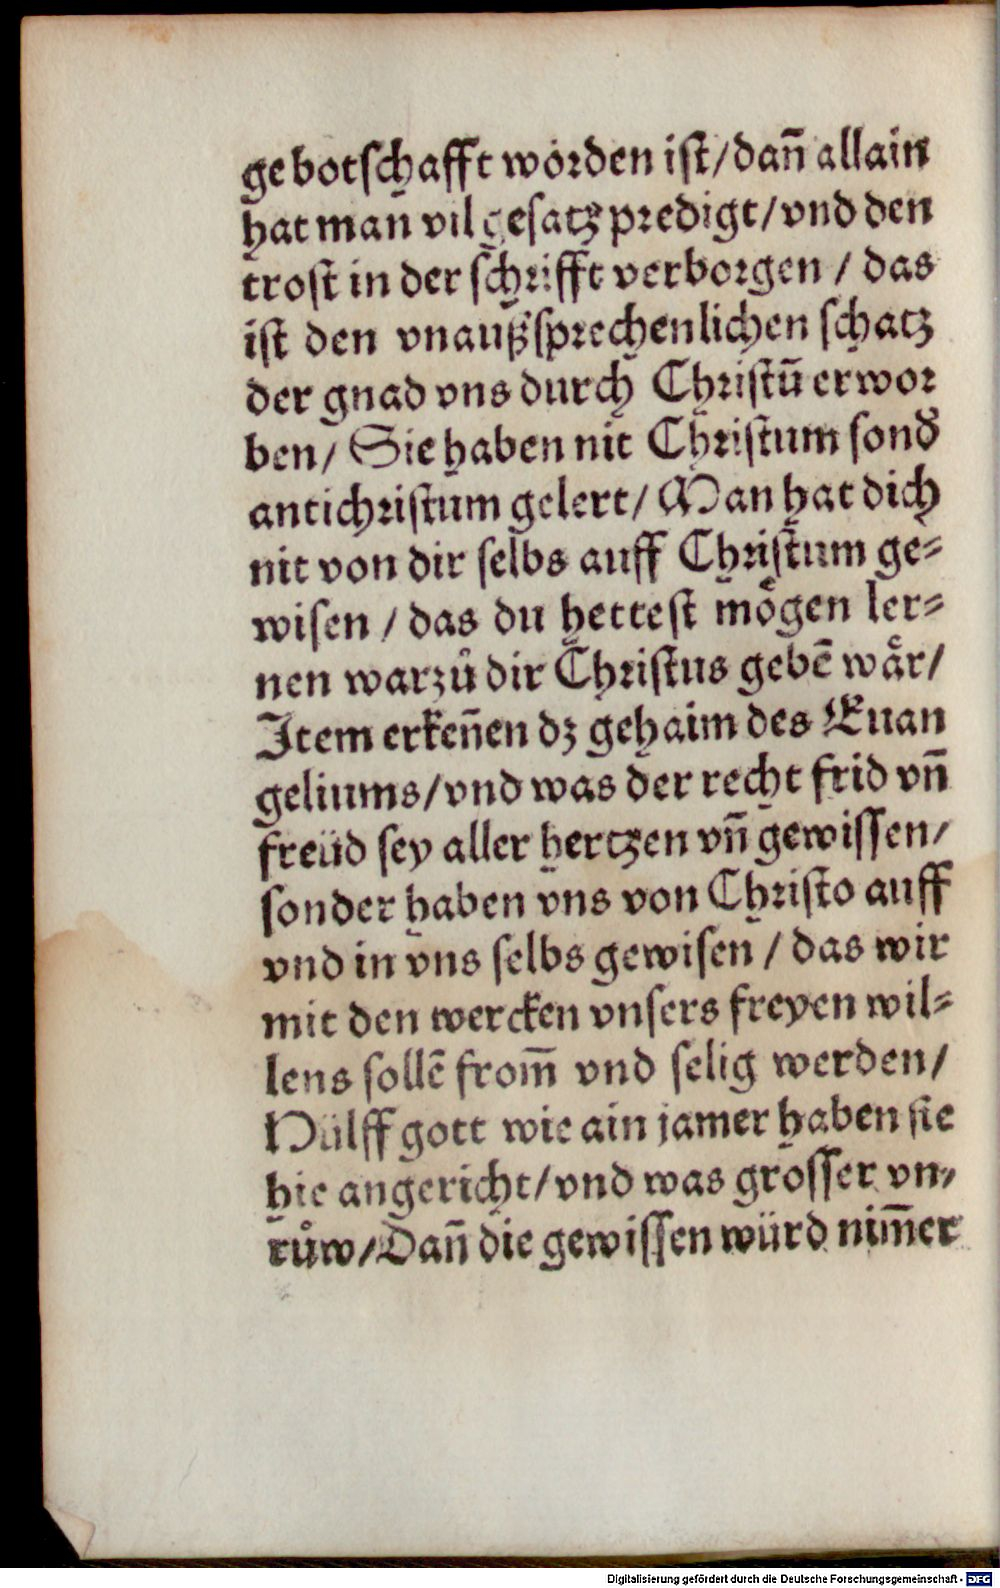 gebotschafft worden ist/dañ allain
hat man vil gesatz predigt/vnd den
trost in der schrifft verborgen / das
ist den vnaußsprechenlichen schatz
der gnad vns durch Christū erwor
ben/ Sie haben nit Christum sond̕
antichristum gelert/ Man hat dich
nit von dir selbs auff Christum ge⸗
wisen / das du hettest mögen ler⸗
nen warzů dir Christus gebē wår/
Item erkeñen dz gehaim des Euan
geliums/vnd was der recht frid vñ
freüd sey aller hertzen vñ gewissen/
sonder haben vns von Christo auff
vnd in vns selbs gewisen / das wir
mit den wercken vnsers freyen wil⸗
lens sollē from̄ vnd selig werden/
Hülff gott wie ain jamer haben sie
hie angericht/vnd was grosser vn⸗
růw/Dañ die gewissen würd nim̄er
Digitalisierung gefördert durch die Deutsche Forschungsgemeinschaft - DFG